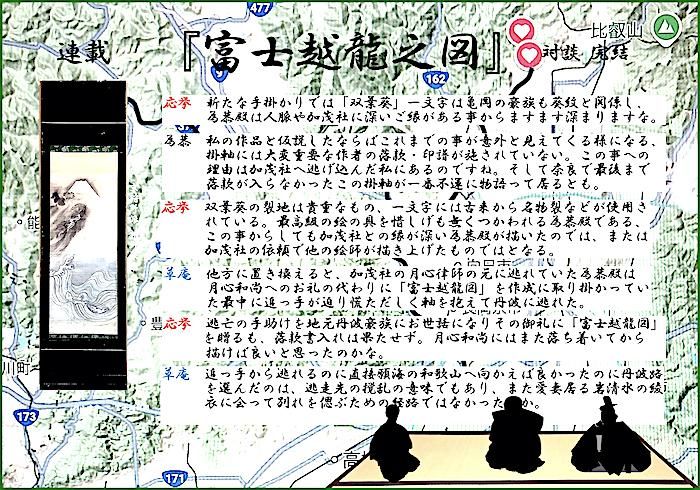 連載
『富士越龍之図』
対談 完結
比叡山
477
162
9
応挙 新たな手掛かりでは「双葉葵」一文字は亀岡の豪族も葵紋と関係し、
為恭殿は人脈や加茂社に深いご縁がある事からますます深まりますな。
為恭 私の作品と仮説したならばこれまでの事が意外と見えてくる様になる、
掛軸には大変重要な作者の落款・印譜が施されていない。この事への
理由は加茂社へ逃げ込んだ私にあるのですね。そして奈良で最後まで
落款が入らなかったこの掛軸が一番不運に物語って居るとも。
応挙 双葉葵の裂地は貴重なもの、一文字には古来から名物裂などが使用さ
れている。最高級の絵の具を惜しげも無くつかわれる為恭殿である、
この事からしても加茂社との縁が深い為恭殿が描いたのでは、または
加茂社の依頼で他の絵師が描き上げたものではとなる。
草庵 他方に置き換えると、加茂社の月心律師の元に逃れていた為恭殿は
月心和尚へのお礼の代わりに「富士越龍図」を作成に取り掛かってい
た最中に追っ手が迫り慌ただしく軸を抱えて丹波に逃れた。
応挙 逃亡の手助けを地元丹波豪族にお世話になりその御礼に「富士越龍図」
を贈るも、落款書入れは果たせず。月心和尚にはまた落ち着いてから
描けば良いと思ったのかな。
草庵 追っ手から逃れるのに直接領海の和歌山へ向かえば良かったのに丹波路
を選んだのは、逃走先の撹乱の意味でもあり、また愛妻居る岩清水の綾
衣に会って別れを偲ぶための経路ではなかったか。
能
豊
川町
173
171
高